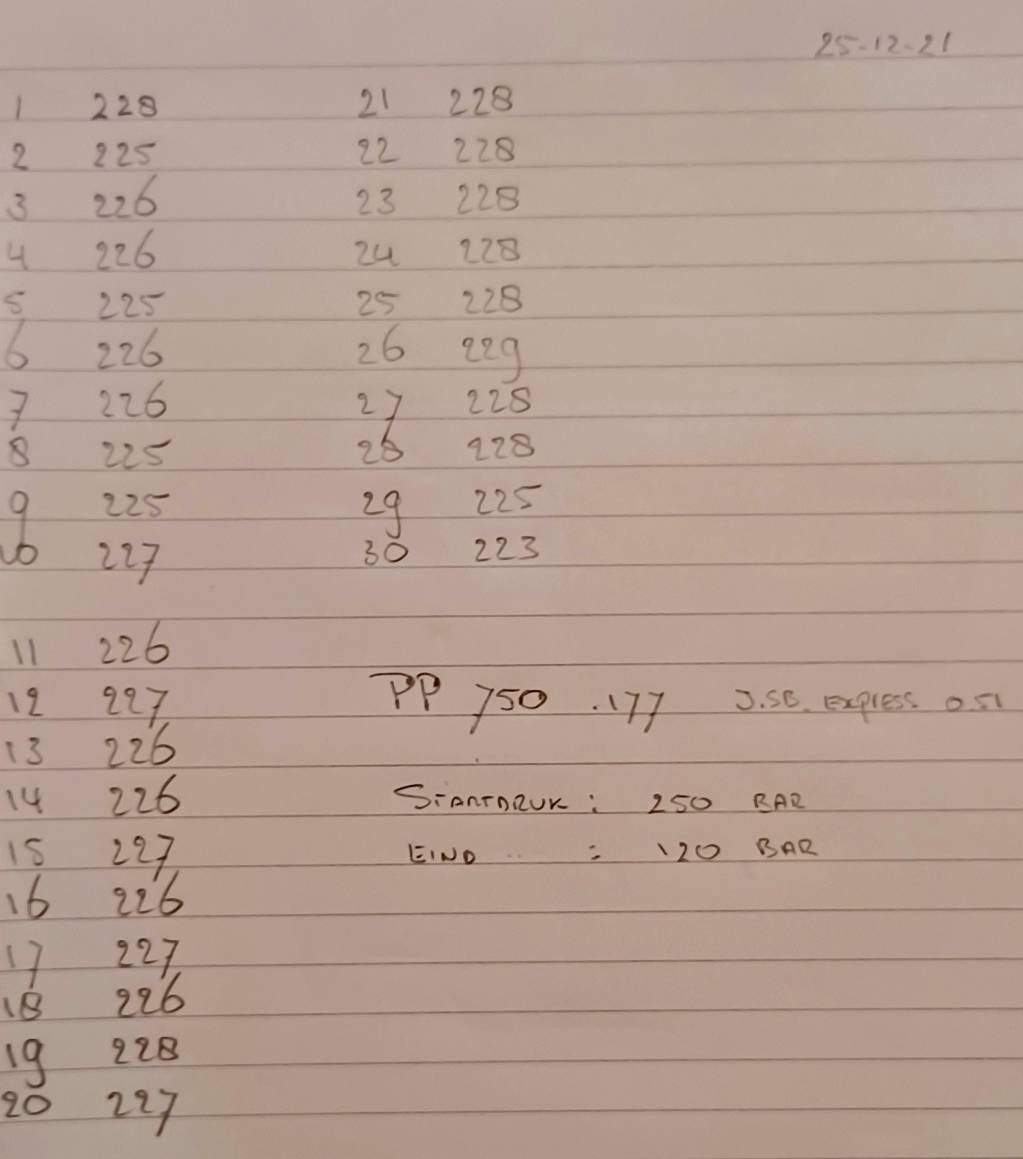 25-12-21
1 228
2 225
3 226
4 226
5 225
6 226
7 226
8 225
9 225
10 227
11 226
12 227
13 226
14 226
15 227
16 226
17 227
18 226
19 228
20 227
21 228
22 228
23 228
24 228
25 228
26 229
27 228
28 228
29 225
30 223
PP 750 .177 J.SB. EXPRESS 0.51
STARTDRUK : 250 BAR
EIND .. : 120 BAR